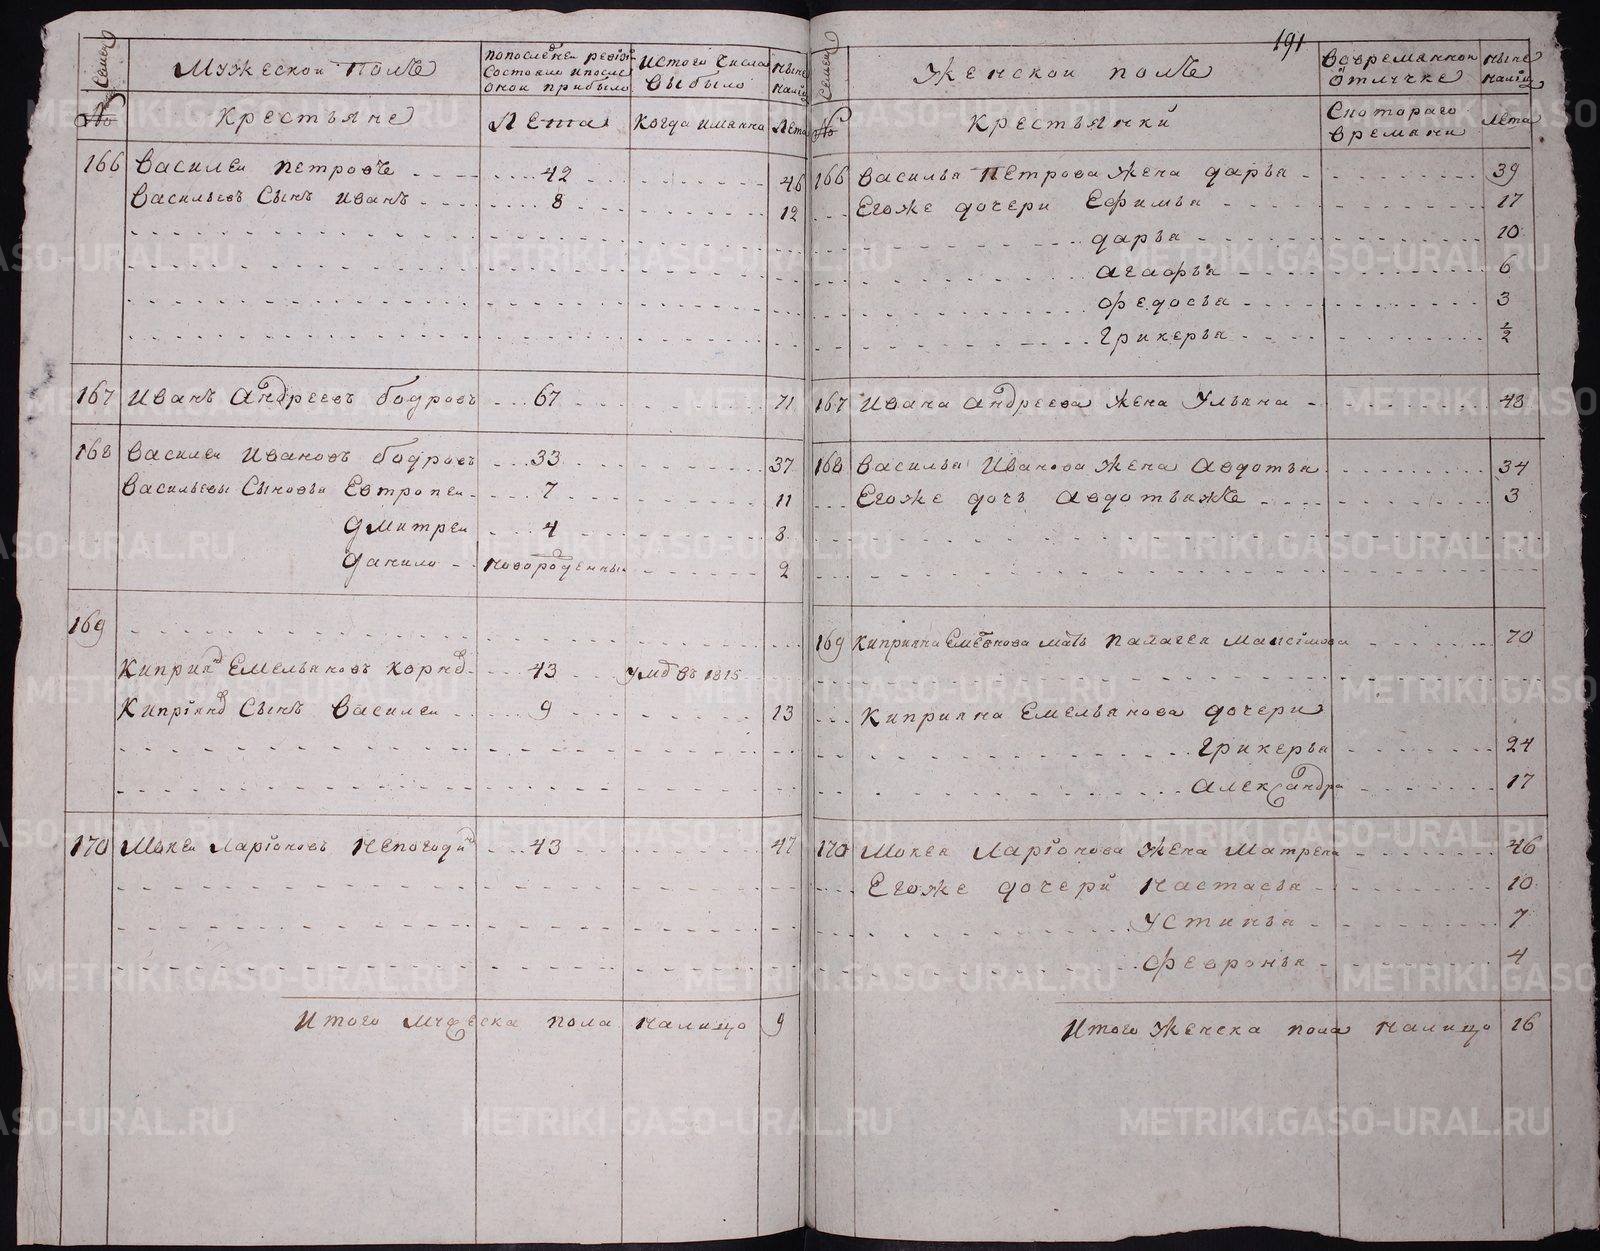 191
Семеи
Мужескои полъ
Попоследнеи ревизии
Состояло ипосле
Онои прибыло
Истого Числа
Выбыло
Ныне
налицо
№
Крестьяне
Лета
Когда имянно
Лета
166 Василеи Петровъ 42 46
Васильевъ Сынъ Иванъ 8 12
167 Иванъ Андреевъ Бодровъ 67 71
168 Василеи Ивановъ Бодровъ 33 37
Васильевы Сыновья Евтропеи 7 11
Дмитреи 4 8
Данило новорожденныи 2
169
Киприанъ Емельяновъ 43 умре въ 1815
Кипріана Сынъ Василеи 9 13
170 Мокеи Ларіоновъ Непогодин 43 47
Итого мужеска пола налицо 9
Семеи
Женскои полъ
Вовременнои
Отлучке
Ныне
налицо
№
Крестьянки
Скотораго
времани
Лета
166 Василья Петрова жена дарья 39
Егоже дочери Ефимья 17
дарья 10
агафья 6
федосья 3
Грикерья ½
167 Ивана Андреева жена Ульяна 48
168 Василья Иванова жена Авдотья 34
Егоже дочь Авдотьяже 3
169 Киприяна Емельянова мать Палагея Максімова 70
Киприяна Емельянова дочери
Грикерья 24
Александра 17
170 Мокея Ларіонова жена Матрена 46
Егоже дочери Настасья 10
Устинья 7
Февронья 4
Итого женска пола налицо 16
METRIKI.GASO-URAL.RU